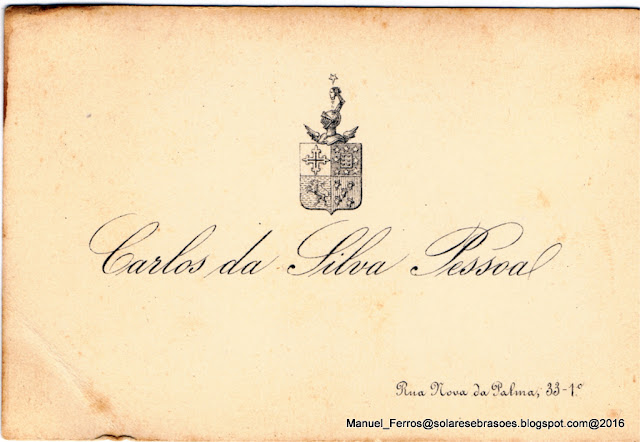 Carlos da Silva Pessoa
Rua Nova da Palma, 33-1.º
Manuel_Ferros@solaresebrasoes.blogspot.com@2016